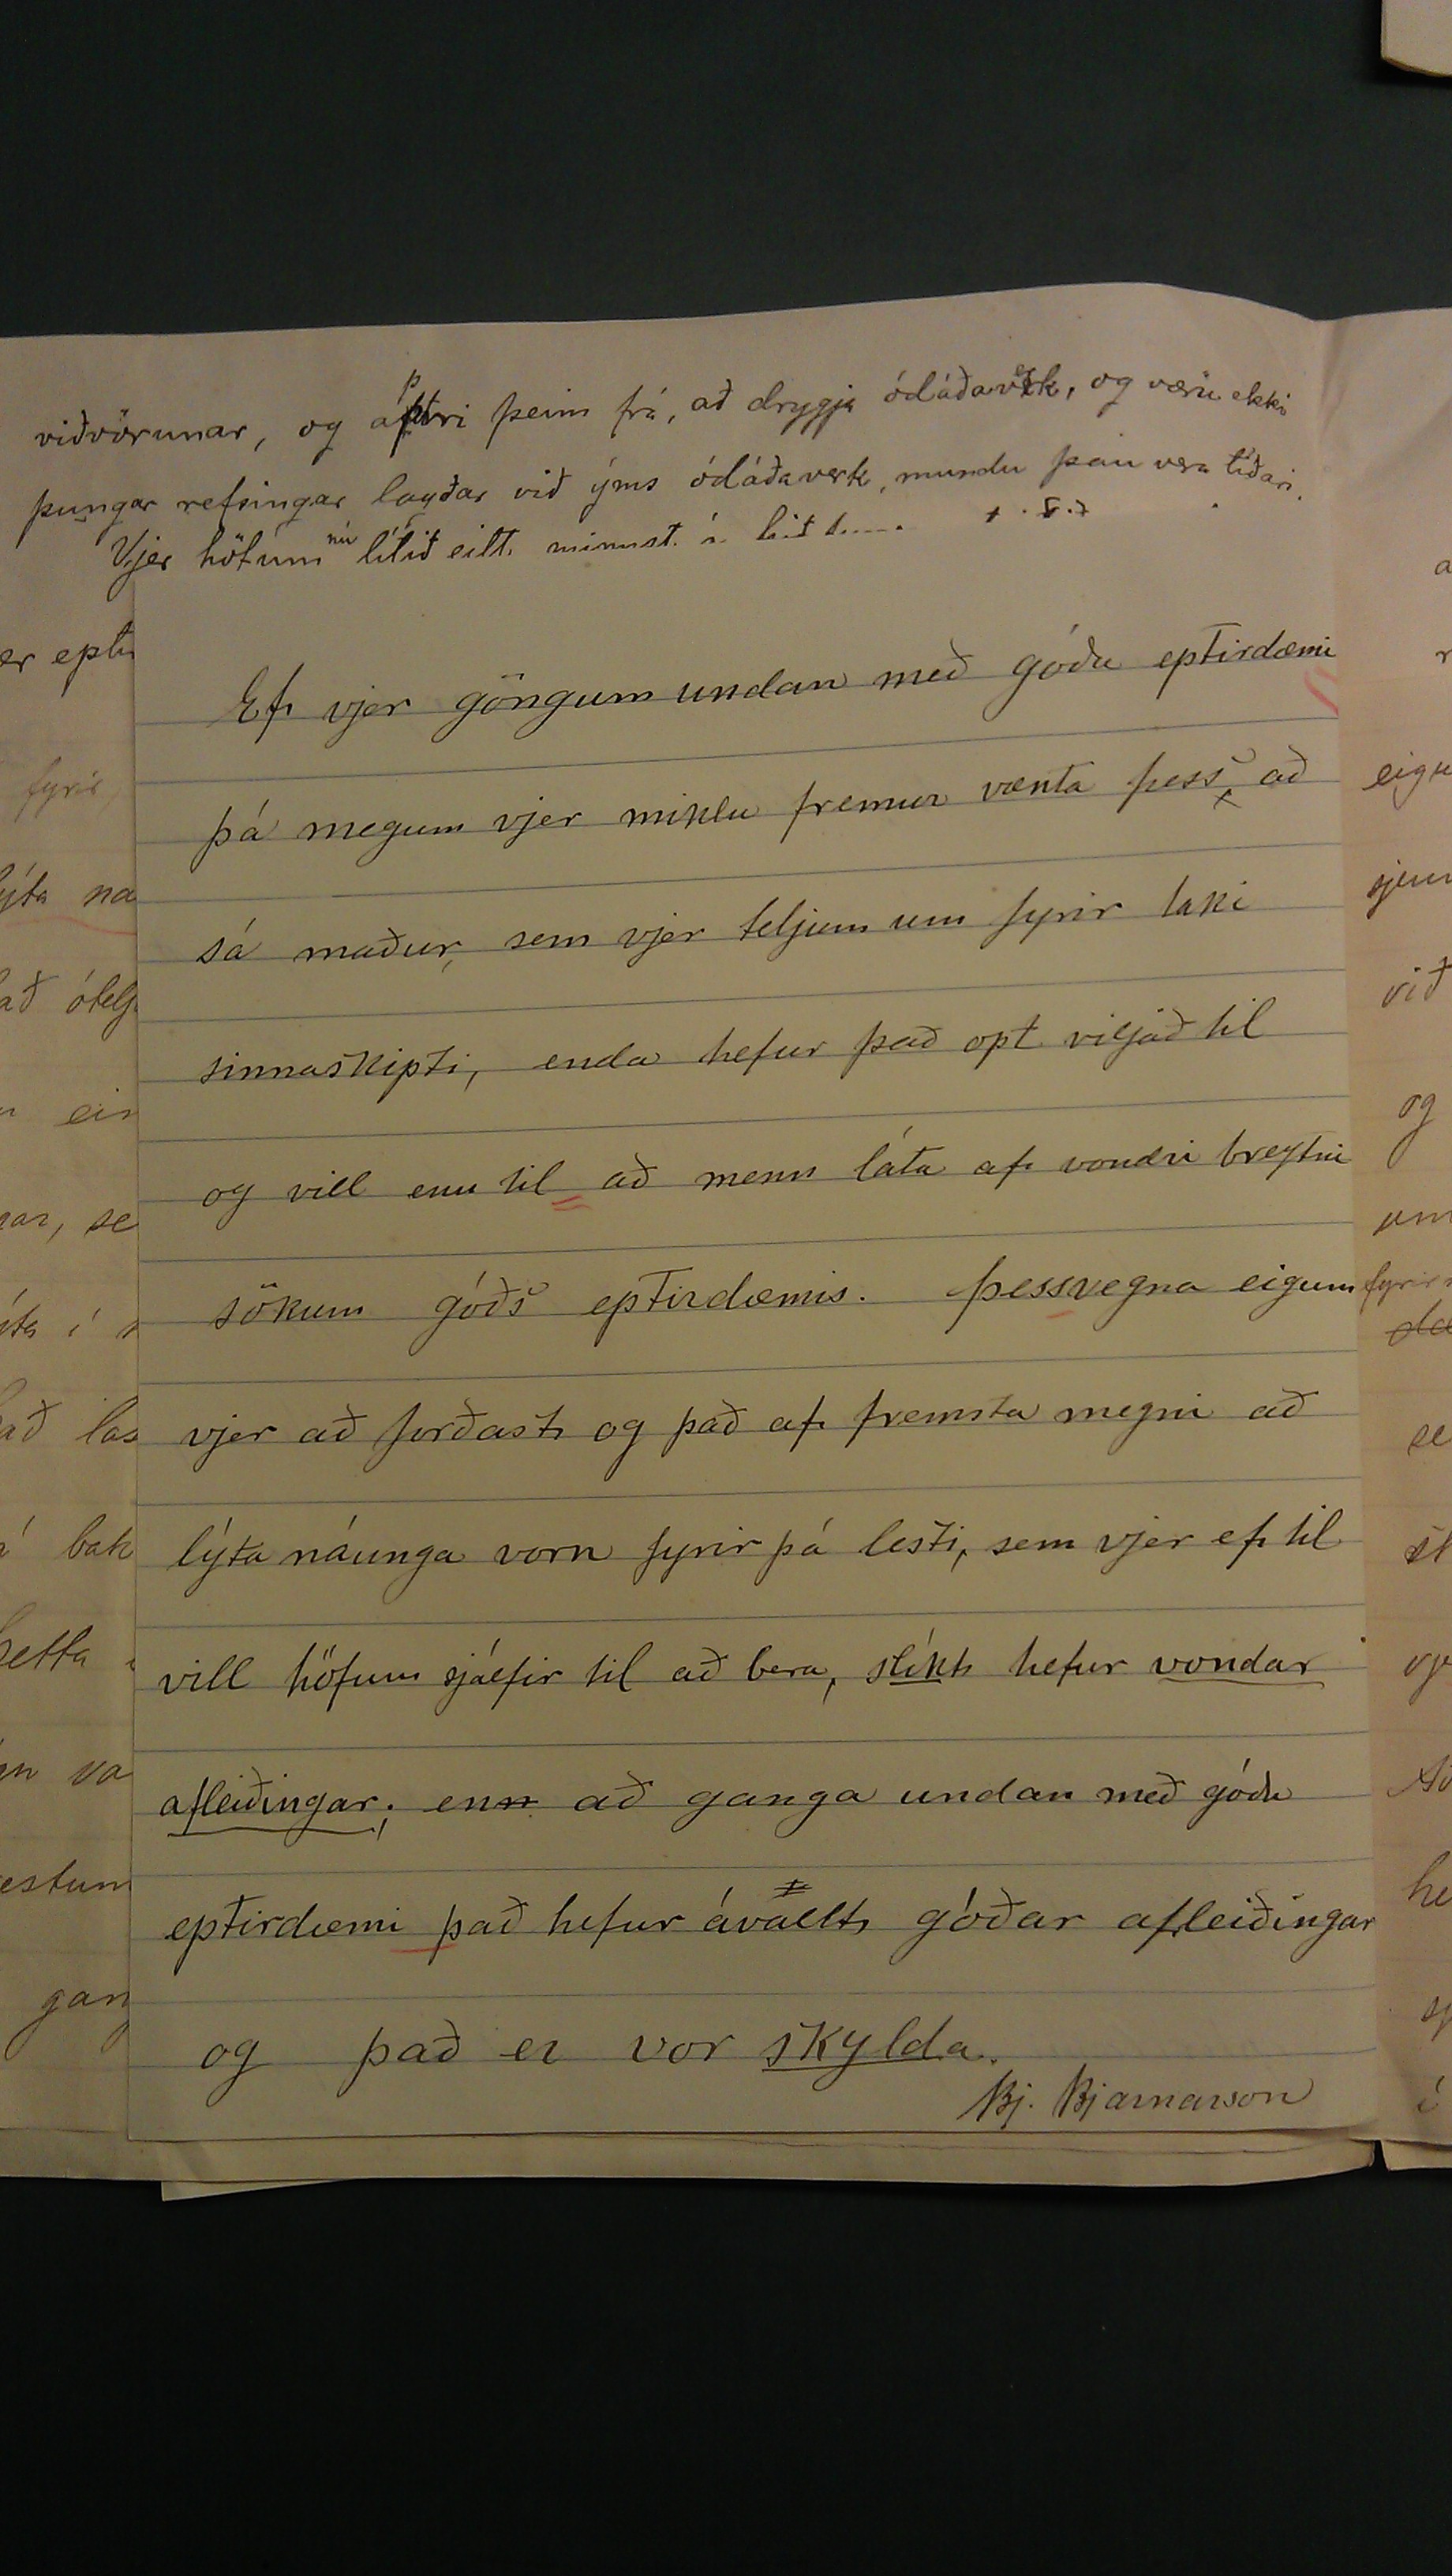 viðvörunar, og aptri þeim frá, að drygja ódáðaverk, og væru ekki
þungar refsingar lagðar við ýms ódáðaverk, mundu þau vera tíðari.
Vjer höfum nú lítið eitt minnst á
Ef vjer göngum undan með góðu eptirdæmi
þá megum vjer miklu fremur vænta þess að
sá maður, sem vjer teljum um fyrir taki
sinnaskipti, enda hefur það opt viljað til
og vill enn til að menn láta af vondri breytni
sökum góðs eptirdæmis. þessvegna eigum
vjer að forðast og það af fremsta megni að
lýta náunga vorn fyrir þá lesti, sem vjer ef til
vill höfum sjálfir til að bera, slíkt hefur vondar
afleiðingar; enn að ganga undan með góðu
eptirdæmi það hefur ávallt góðar afleiðingar
og það er vor skylda.
Bj. Bjarnarson
er
fyrir
ýta na
að ótelj
ein
gar, se
að las
á bak
þetta
gan
eigu
við
og
fyrir
he